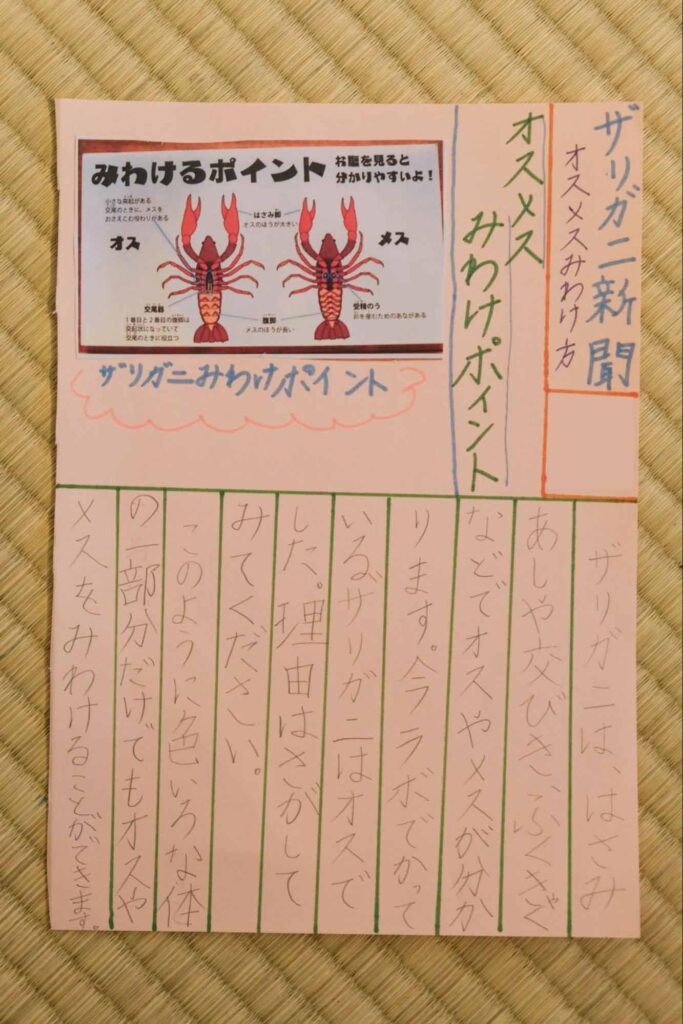 ザリガニ新聞
オスメスみわけ方
オスメス
みわけポイント
みわけるポイント
お腹を見ると
分かりやすいよ!
小さな突起がある
交尾のときに、メスを
おさえこむ役わりがある
はさみ脚
オスのほうが大きい
オス
メス
交尾器
1番目と2番目の腹脚は
交尾のときに役立つ
腹脚
メスのほうが長い
受精のう
卵を産むためのあながある
ザリガニみわけポイント
ザリガニは、はさみ
あしや交びき、ふくきゃく
などでオスやメスが分か
ります。今ラボでかって
いるザリガニはオスで
した。理由はさがして
みてください。
このように色いろな体
の一部分だけでもオスや
メスをみわけることができます。